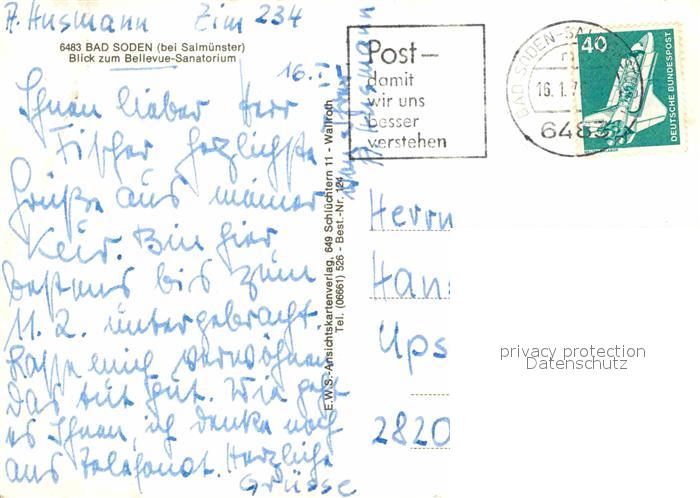 A. Husmann Zim 234
6483 BAD SODEN (bei Salmünster)
Blick zum Bellevue-Sanatorium
16. I.
Ihnen lieber Herr
Fischer herzlichste
Grüße aus meiner
Kur. Bin hier
bestens bis zum
11. 2. untergebracht.
Lasse mich verwöhnen
Das tut gut. Wie geht
es Ihnen, ich denke noch
ans Telefonat. Herzliche
Grüsse
Husmann
E.W.S.-Ansichtskartenverlag, 649 Schlüchtern 11 - Wallroth
Tel. (06661) 526 - Best.-Nr. 124
Post-
damit
wir uns
besser
verstehen
BAD SODEN-SAL
16. 1. 7
6483
40
DEUTSCHE BUNDESPOST
Herrn
Han
Ups
2820
privacy protection
Datenschutz